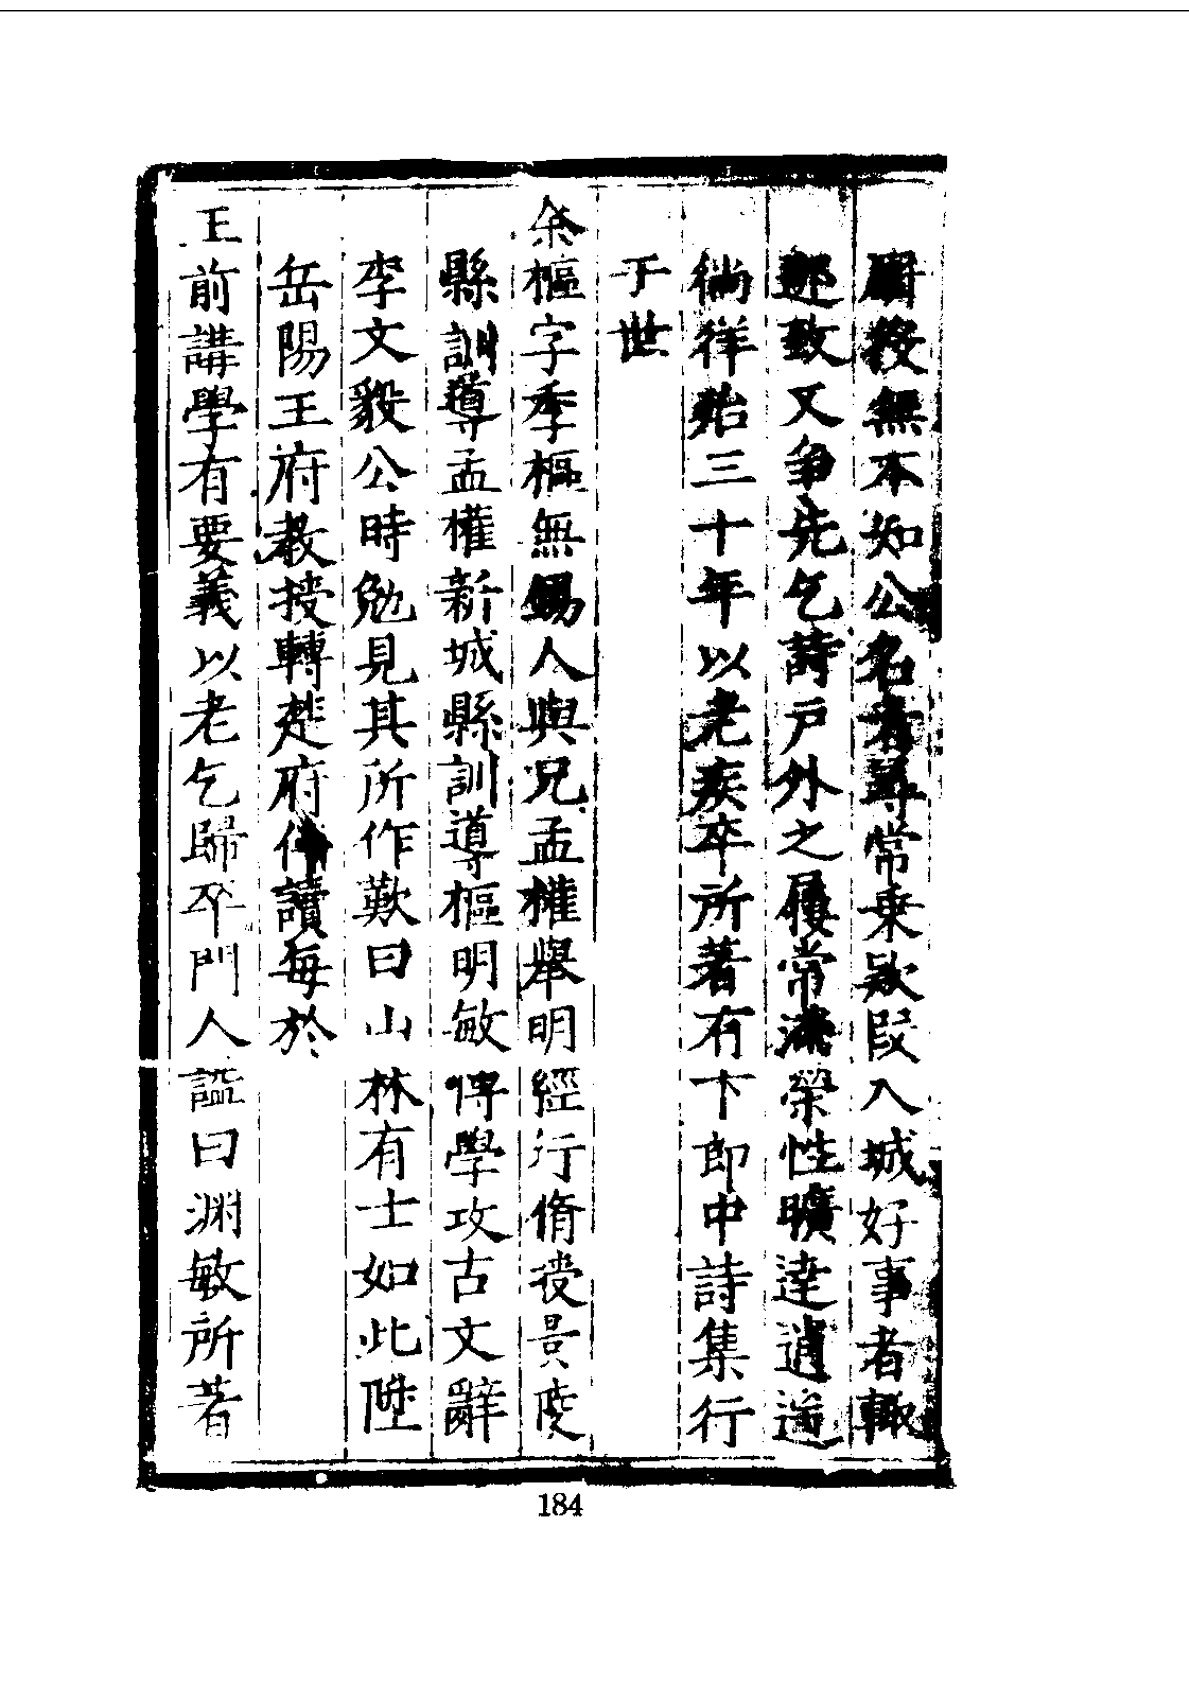 授無本知公名者尋常乗欵段入城好事者輙
邀致又争先乞詩戶外之屨常滿榮性曠達逍遥
徜徉殆三十年以老疾卒所著有卞郎中詩集行
于世
余樞字季樞無錫人與兄孟權舉明經行脩授景陵
縣訓導孟權新城縣訓導樞明敏博學攻古文辭
李文毅公時勉見其所作歎曰山林有士如此陞
岳陽王府教授轉楚府伴讀每於
王前講學有要義以老乞歸卒門人謚曰淵敏所著
184